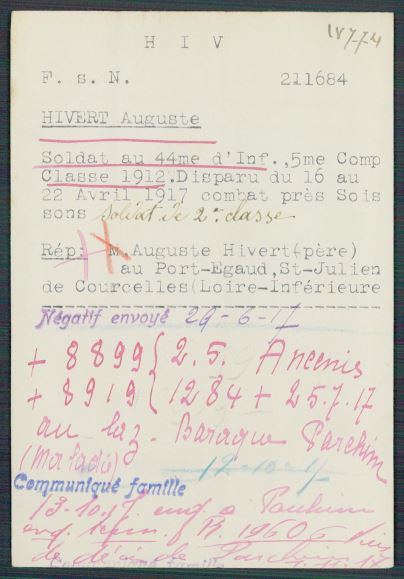 H I V
187-74
F. s. N. 211684
HIVERT Auguste
Soldat au 44me d'Inf.,5me Comp
Classe 1912.Disparu du 16 au
22 Avril 1917 combat près Sois
sons soldat de 2e classe
Rép: M.Auguste Hivert(père)
au Port-Egaud,St-Julien
de Courcelles(Loire-Inférieure
Négatif envoyé 29-6-17
+ 8899 { 2.5. Ancenis
+ 8919 { 1284 + 25.7.17
au laz. Baraque Parchim
(Malade) 12-10-17
Communiqué famille
13.10.17 a Parchim
R. 1960
de de Parchim